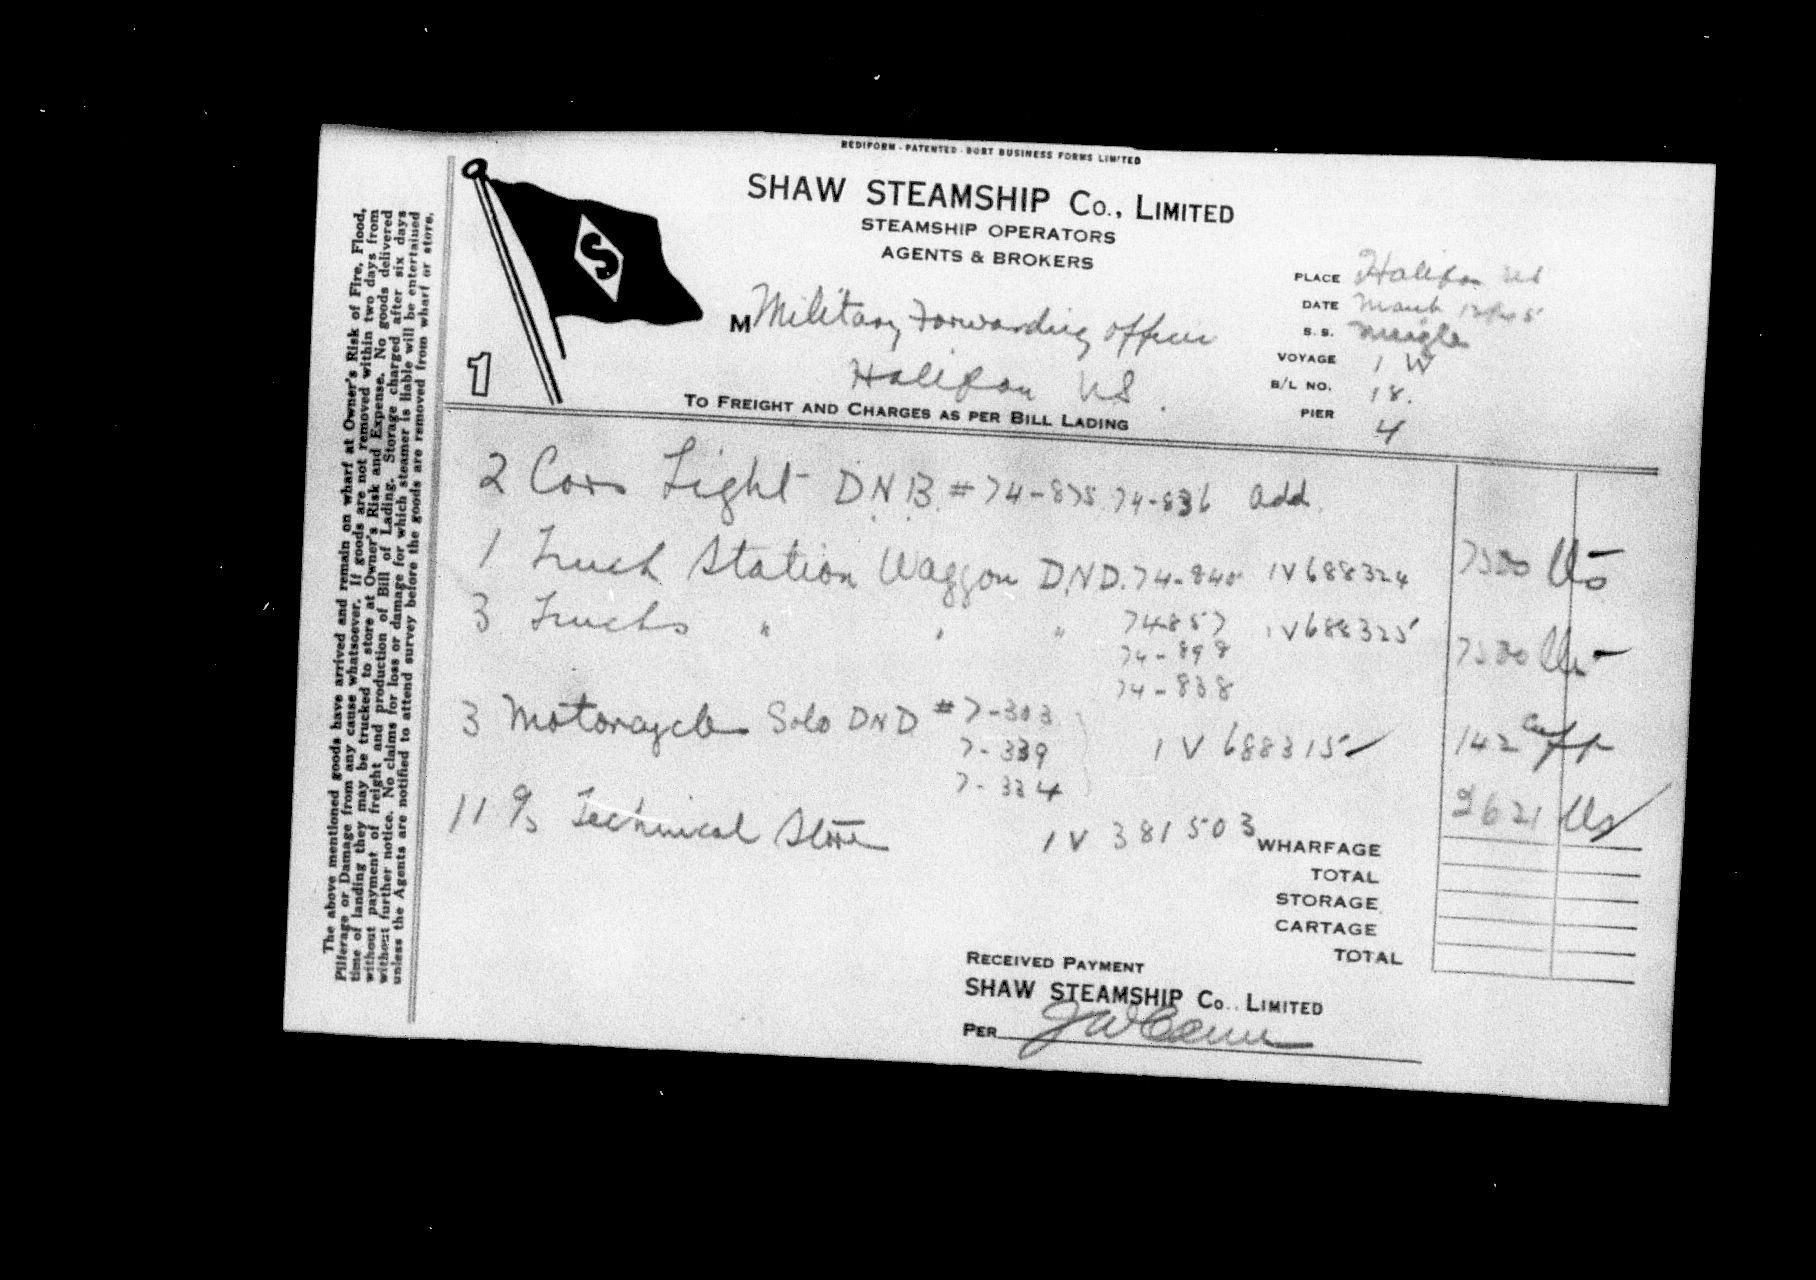 REDIFORM - PATENTED - BURT BUSINESS FORMS LIMITED
SHAW STEAMSHIP Co., LIMITED
STEAMSHIP OPERATORS
AGENTS & BROKERS
S
1
PLACE Halifax NS
DATE March
S. S. Meigle
VOYAGE 1 W
B/L NO. 18.
PIER 4
M Military Forwarding Officer
Halifax NS.
TO FREIGHT AND CHARGES AS PER BILL LADING
2 Cars Light DNB # 74-875 74-836 add.
1 Truck Station Waggon D.N.D. 74-840 IV 688324 7500 lbs
3 Trucks " " " 74857 IV688325 7500 lbs
74-898
74-838
3 Motorcycles Solo DND # 7-303 142
7-339 IV 688315
7-334
11 c/s Technical Store IV 381503 2621 lbs
WHARFAGE
TOTAL
STORAGE
CARTAGE
TOTAL
RECEIVED PAYMENT
SHAW STEAMSHIP Co., LIMITED
PER
The above mentioned goods have arrived and remain on wharf at Owner's Risk of Fire, Flood,
Pilferage or Damage from any cause whatsoever. If goods are not removed within two days from
time of landing they may be trucked to store at Owner's Risk and Expense. No goods delivered
without payment of freight and production of Bill of Lading. Storage charged after six days
without further notice. No claims for loss or damage for which steamer is liable will be entertained
unless the Agents are notified to attend survey before the goods are removed from wharf or store.